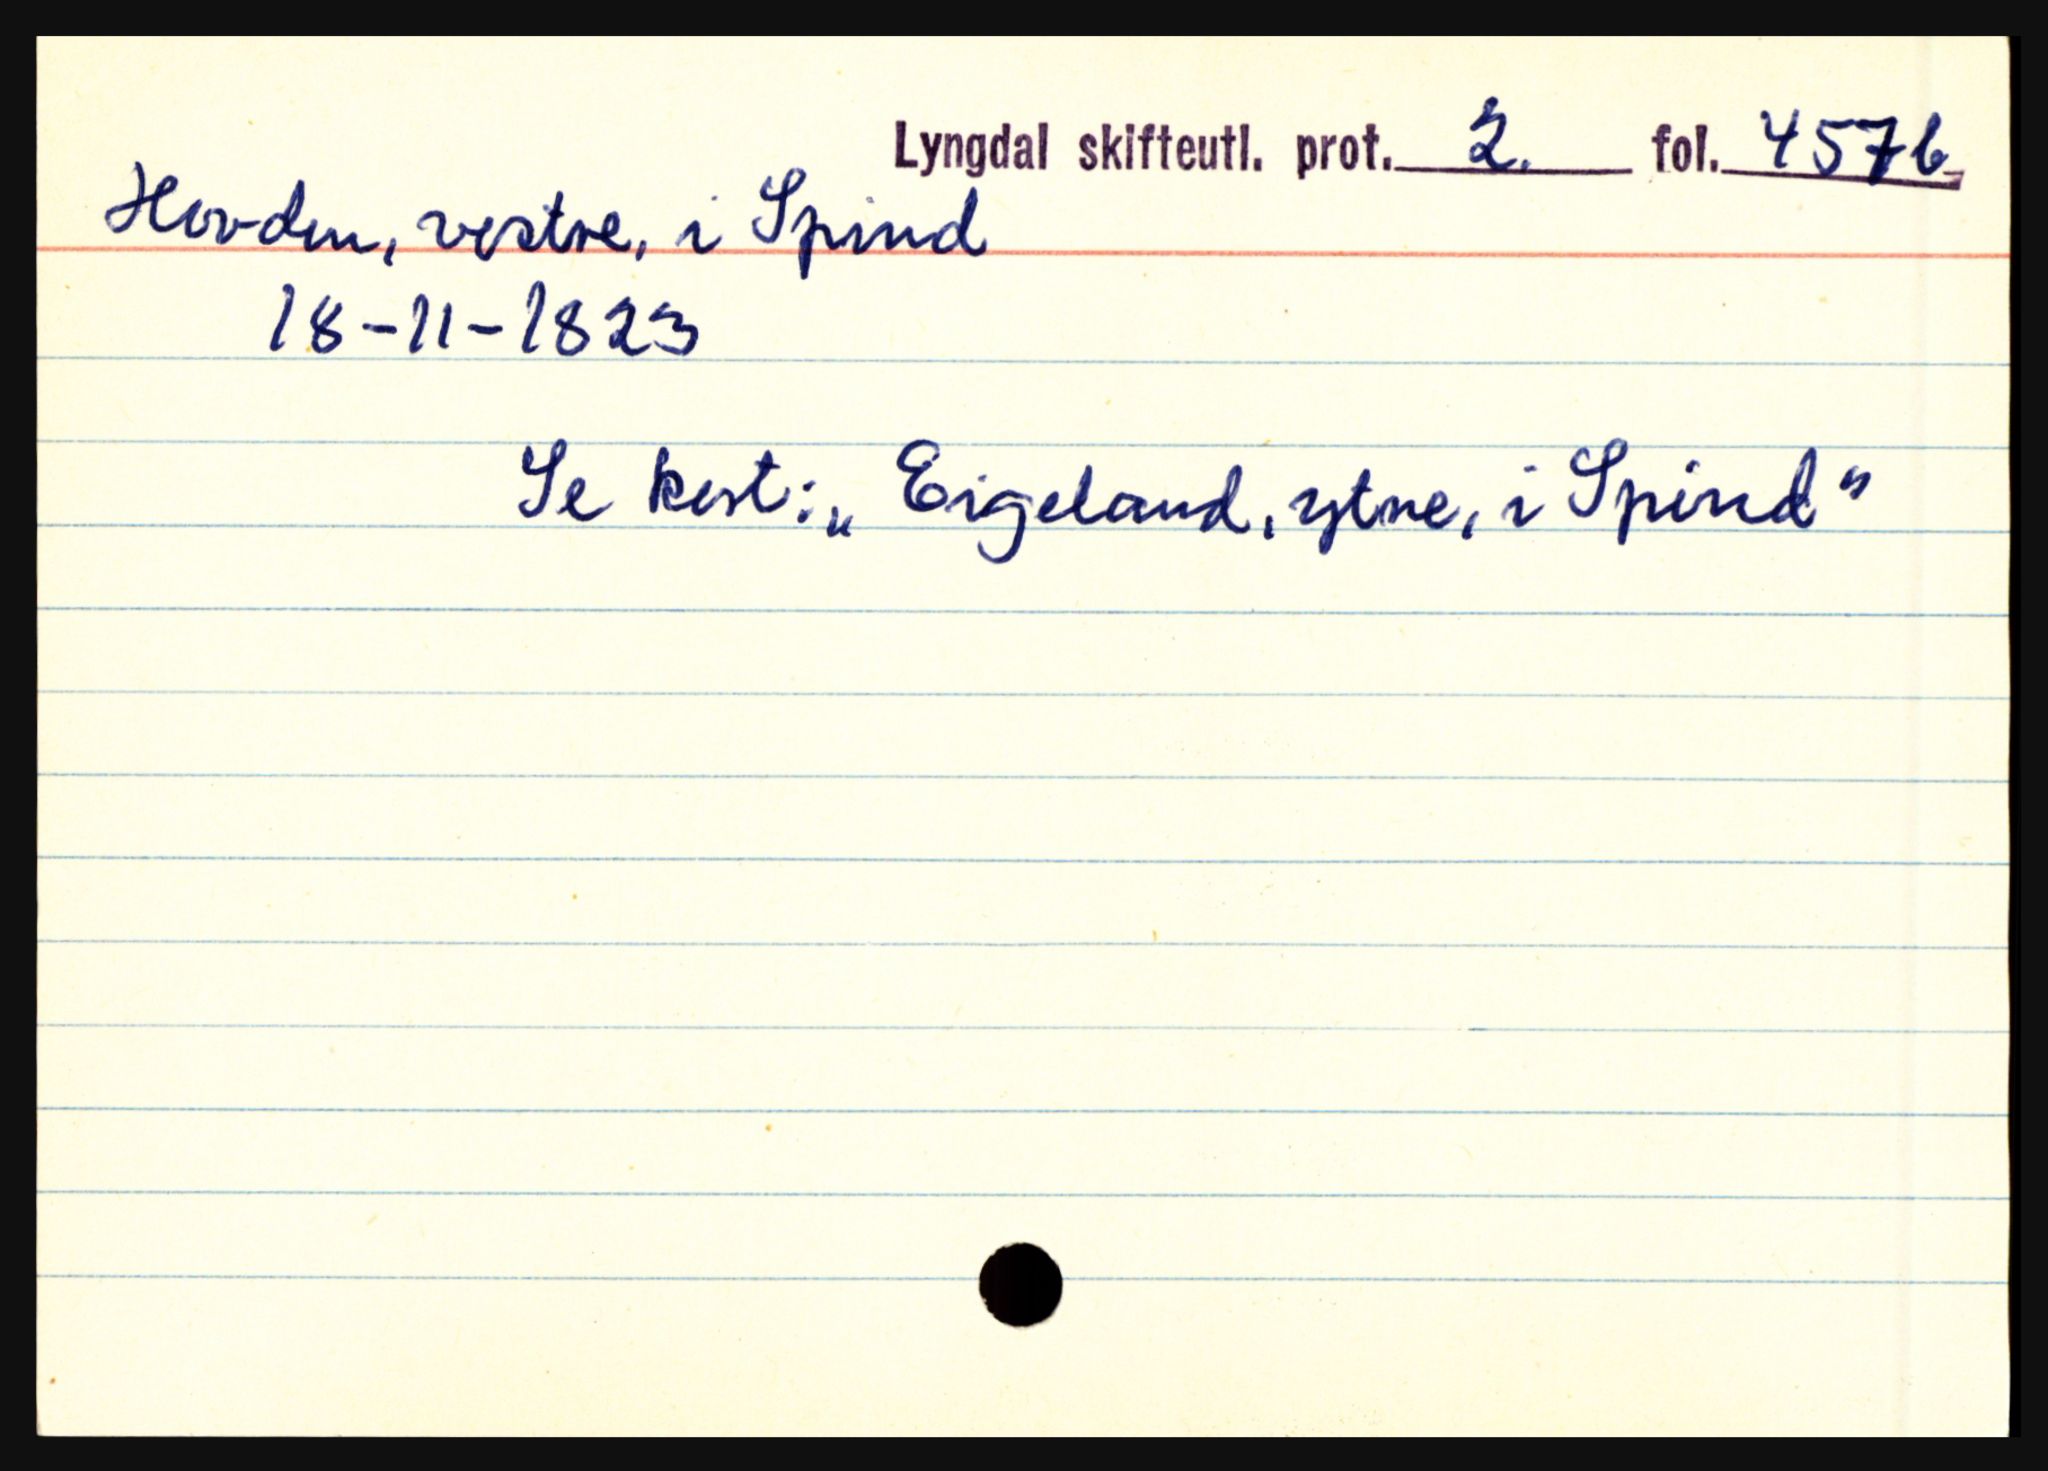 Lyngdal skifteutl. prot. 2. fol. 457b
Hovden, vestre, i Spind
18-11-1823
Se kort: „Eigeland, ytre, i Spind"